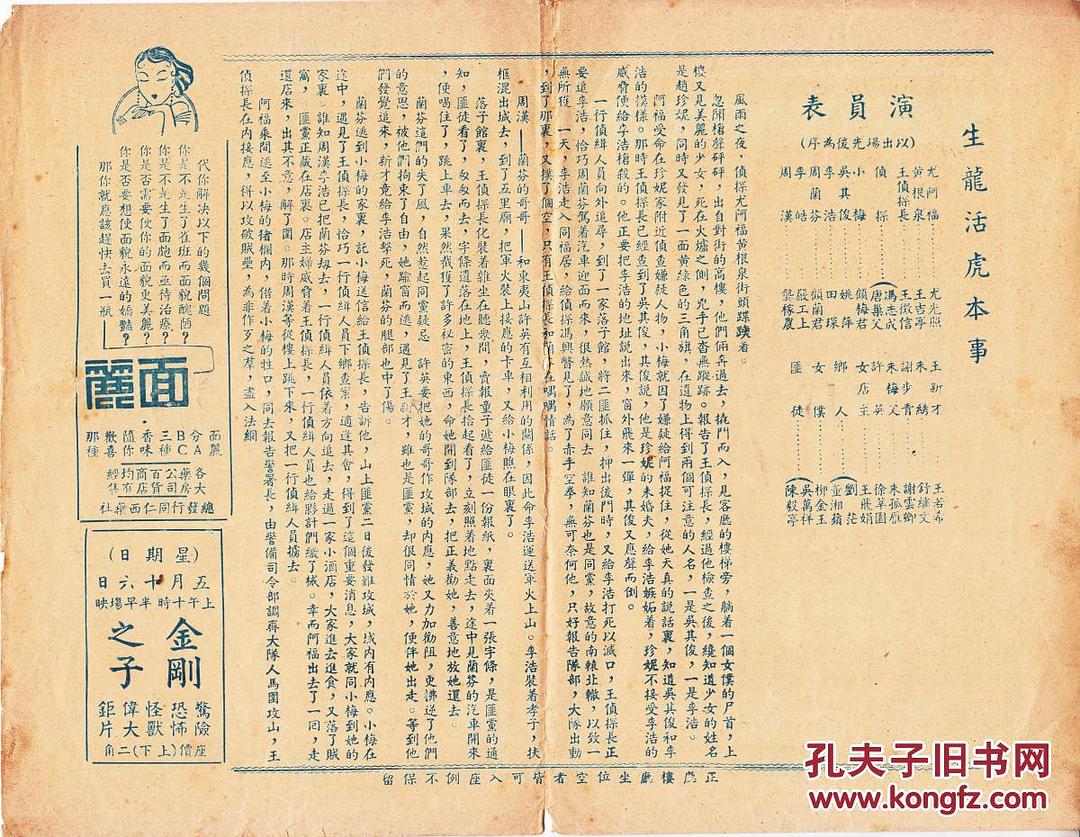 生龍活虎本事
演員表
(以出場先後為序)
尤阿福………尤光照
黃根泉………王吉亭
王偵探長………王徵信
偵探………馮志成
唐巢父
小梅………傾梅君
吳其俊………姚萍
李浩………田琛
周蘭芬………傾蘭君
李浩………嚴工上
周漢………
王新才………王若希
朱繡………舒繡文
謝步青………謝雲卿
朱梅英………朱孤雁
許父………徐莘園
女店主………王飛娟
鄉人………劉茫
女僕………董湘蘋
匪徒………柳金玉
吳萬祥
陳毅亭
風雨之夜,偵探尤阿福黃根泉街頭蹀躞着。
忽聞槍聲砰砰,出自對街的高樓,他們倆奔過去,撬門而入,見客廳的樓梯旁,躺着一個女僕的尸首,上
樓又見美麗的少女,死在火爐之側,兇手已杳無蹤跡。報告了王偵探長,經過他檢查之後,纔知道少女的姓名
是趙珍妮,同時又發見了一面黃綠色的三角旗,在遺物上得到兩個可注意的人名,一是吳其俊,一是李浩。
阿福受命在珍妮家附近偵查嫌疑人物,小梅就因了嫌疑給阿福捉住,從她天真的說話裏,知道吳其俊和李
浩的模樣。那時王偵探長已經查到了吳其俊,其俊說,他是珍妮的未婚夫,給李浩嫉妬着,珍妮不接受李浩的
威脅便給李浩槍殺的。他正要把李浩的地址說出來,窗外飛來一彈,其俊又應聲而倒。
一行偵緝人員向外追尋,到了一家落子館,將二匪抓住,押出後門時,又給李浩打死以滅口,王偵探長正
要追李浩,恰巧周蘭芬駕着汽車迎面而來,很熱誠地願意同去 誰知蘭芬也是同黨,故意的南轅北轍,以致一
無所獲 一天,李浩走入同福居,給偵探馮興瞥見了,為了赤手空拳,無可奈何他,只好報告隊部,大隊出動
,到了那裏,又撲了個空,只有王偵探長和蘭芬在喁喁情話。
周漢——蘭芬的哥哥——和東夷山許英有互相利用的關係,因此命李浩運送軍火上山。李浩裝着孝子,扶
柩混出城去,到了五里廟,把軍火裝上接應的卡車,又給小梅瞧在眼裏了。
落子館裏,王偵探長化裝着雜坐在聽衆間,賣報童子遞給匪徒一份報紙,裏面夾着一張字條,是匪黨的通
知,匪徒看了,匆匆而去,字條遺落在地上,王偵探長拾起看了,立刻照着地點走去,途中見蘭芬的汽車開來
,便喝住了,跳上車去,果然截獲了許多秘密的東西,命她開到隊部去,把正義勸她,善意地放她還去。
蘭芬這們的失了風,自然惹起同黨疑忌 許英要把她的哥哥作攻城的內應,她又力加勸阻,更拂逆了他們
的意思,被他們拘束了自由,她踰窗而逃,遇見了王新才,雖也是匪黨,却很同情於她,便伴她出走。等到他
們發覺追來,新才竟給李浩擊死,蘭芬的腿部也中了傷。
蘭芬逃到小梅的家裏,託小梅送信給王偵探長,告訴他,山上匪黨二日後發難攻城,城內有內應。小梅在
途中,遇見了王偵探長,恰巧一行偵緝人員下鄉查案,適逢其會,得到了這個重要消息,大家就同小梅到她的
家裏。誰知周漢李浩已把蘭芬刼去,一行偵緝人員依着方向追去,走過一家小酒店,大家進去進食,又落了賊
窩, 匪黨正藏在店裏。店主婦威脅着王偵探長,一行偵緝人員也給夥計們繳了械。幸而阿福出去了一回,走
還店來,出其不意,解了圍。那時周漢等從樓上跳下來,又把一行偵緝人員擄去。
阿福乘間逃至小梅的猪欄內,借着小梅的牲口,同去報告警署長,由警備司令部調齊大隊人馬圍攻山,王
偵探長在內接應,得以攻破賊壘,為非作歹之羣,盡入法網
正廳樓廳坐位空者皆可入座例不保留
代你解決以下的幾個問題
你是不是生了雀斑而面貌醜陋?
你是不是生了面皰而亟待治療?
你是否需要使你的面貌更美麗?
你是否要想使面貌永遠的嬌豔?
那你就應該趕快去買一瓶
面麗
面麗
分A
BC
三種
香味
隨你
歡喜
那種
各大藥房公司百貨商店均有經售
總發行同仁西藥社
(星期日)
五月十六日
上午十時半早場映
金剛之子
驚險
恐怖
怪獸
偉大
鉅片
座價(上下)二角
孔夫子旧书网
www.kongfz.com